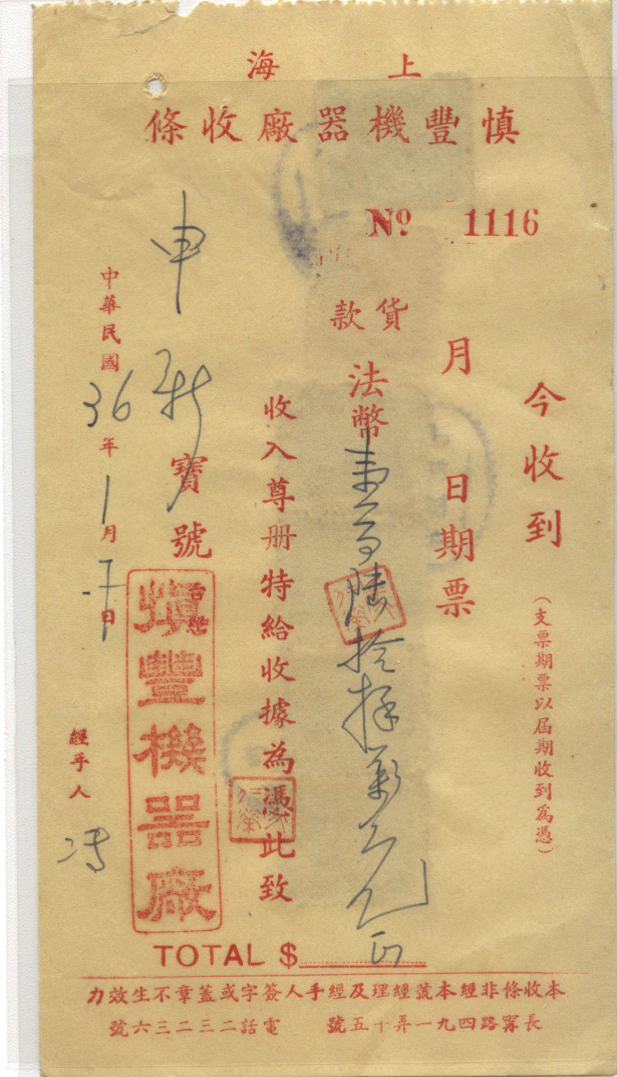 上海
慎豐機器廠收條
№ 1116
今收到
(支票期票以屆期收到為憑)
月 日期票
貨款
法幣壹百陸拾 萬 元正
收入尊册特給收據為憑此致
申新寶號
慎豐機器廠
中華民國36年1月 日
經手人
TOTAL $
本收條非經本號經理及經手人簽字或蓋章不生效力
長甯路四九一弄十五號 電話二三二三六號